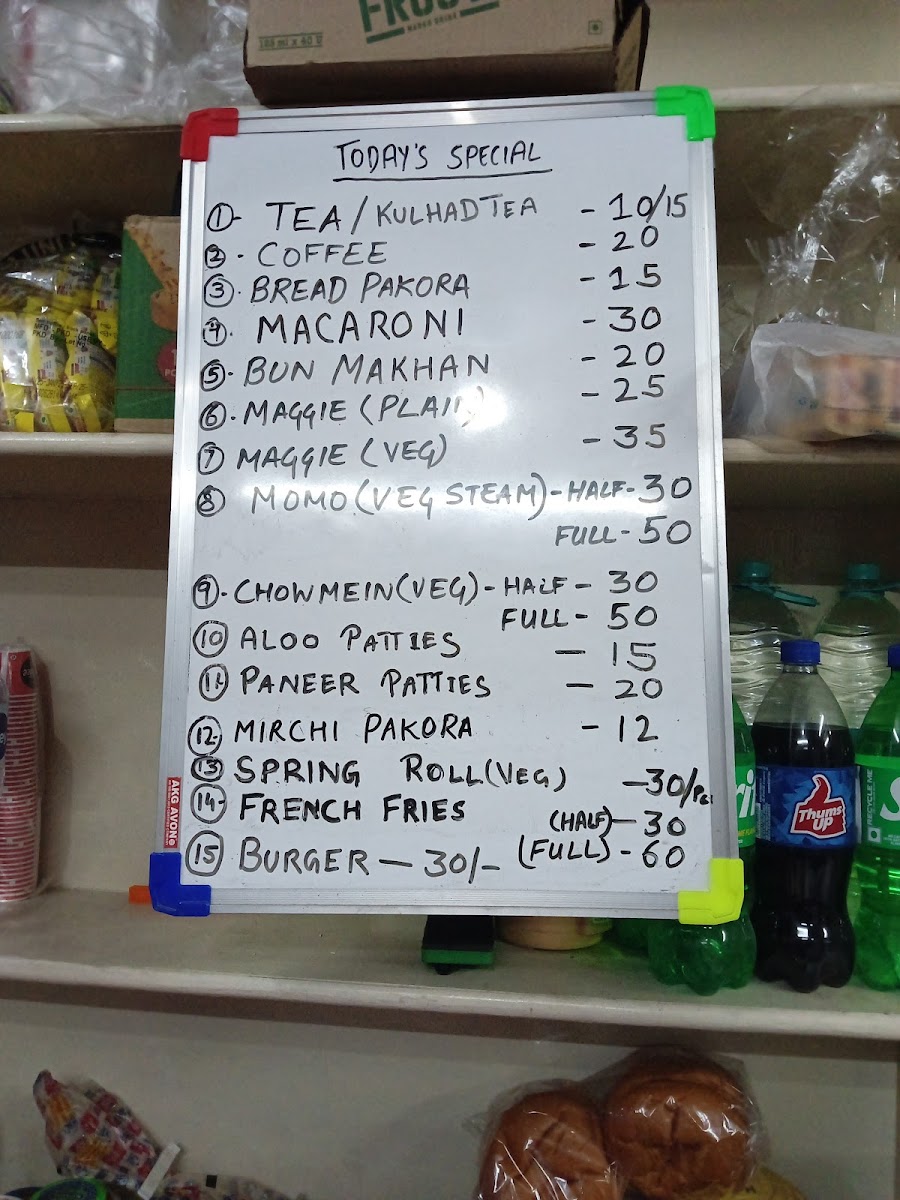 FROO
MANGO DRINK
TODAY'S SPECIAL
①- TEA / KULHAD TEA - 10/15
②. COFFEE - 20
③. BREAD PAKORA - 15
④. MACARONI - 30
⑤. BUN MAKHAN - 20
⑥. MAGGIE (PLAIN) - 25
⑦ MAGGIE (VEG) - 35
⑧ MOMO (VEG STEAM) - HALF - 30
FULL - 50
⑨. CHOWMEIN (VEG) - HALF - 30
FULL - 50
⑩ ALOO PATTIES - 15
⑪ PANEER PATTIES - 20
⑫ MIRCHI PAKORA - 12
⑬ SPRING ROLL (VEG) - 30/Pc.
⑭ FRENCH FRIES (HALF) - 30
⑮ BURGER - 30/- (FULL) - 60
AKG AVON
Thums UP
RECYCLE ME